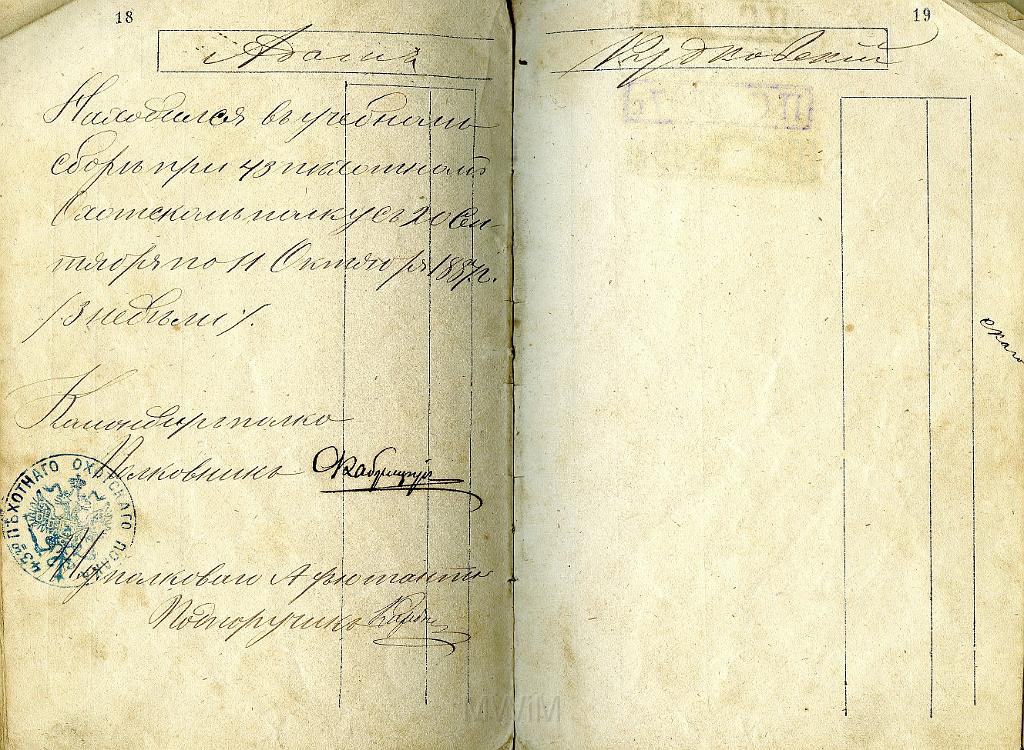 18
Адамъ
Находился въ учебномъ
сборѣ при 43 пѣхотномъ
Охотскомъ полку съ 20 Сен-
тября по 11 Октября 1887 г.
/3 недѣли/.
Командиръ полка
Полковникъ
43го ПѢХОТНАГО ОХОТСКАГО ПОЛКА
полковаго Адъютанта
Подпоручикъ
19
скаго
MWM MIWM